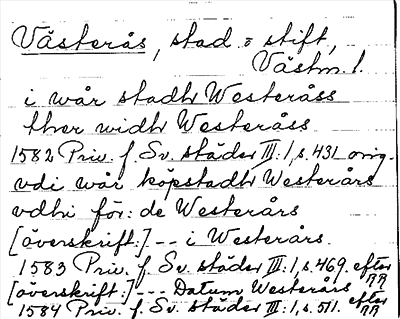 Västerås, stad o stift,
Västm. l.
i wår stadh Westeråss
ther widh Westeråss
1582 Priv. f. Sv. städer III:1, s. 431 orig.
vdi wår köpstadh Westerårs
vdhi för:de Westerårs
[överskrift:] -- i Westerårs.
1583 Priv. f. Sv. städer III:1, s. 469. efter RR
[överskrift:] --- Datum Westerårs
1584 Priv. f. Sv. städer III:1, s. 511. efter RR